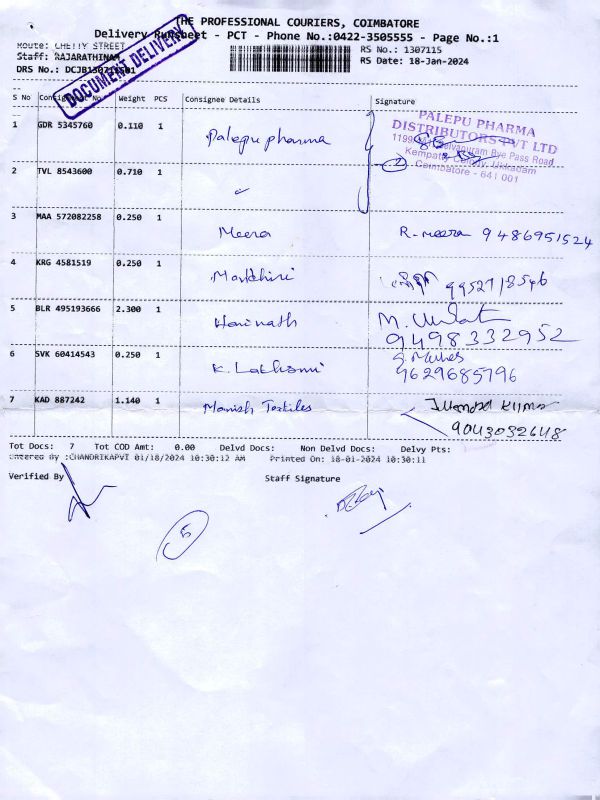 THE PROFESSIONAL COURIERS, COIMBATORE
Delivery Runsheet - PCT - Phone No.:0422-3505555 - Page No.:1
Route: CHETTY STREET
RS No.: 1307115
Staff: RAJARATHINAM
RS Date: 18-Jan-2024
DRS No.:
DOCUMENT DELIVERY
S No Weight PCS Consignee Details Signature
1 GDR 5345760 0.110 1 Palepu pharma
PALEPU PHARMA
DISTRIBUTORS PVT LTD
Bye Pass Road
Kempatty Colony, Ukkadam
Coimbatore - 641 001
2 TVL 8543600 0.710 1 "
3 MAA 572082258 0.250 1 Meera R. meera 9486951524
4 KRG 4581519 0.250 1 9952718546
5 BLR 495193666 2.300 1 Harinath M. 9498332952
6 SVK 60414543 0.250 1 K. Lakshmi 9629685796
7 KAD 887242 1.140 1 Manish Textiles Kumar
9043032648
Tot Docs: 7 Tot COD Amt: 0.00 Delvd Docs: Non Delvd Docs: Delvy Pts:
Entered By :CHANDRIKAPVT 01/18/2024 10:30:12 AM Printed On: 18-01-2024 10:30:11
Verified By Staff Signature
5